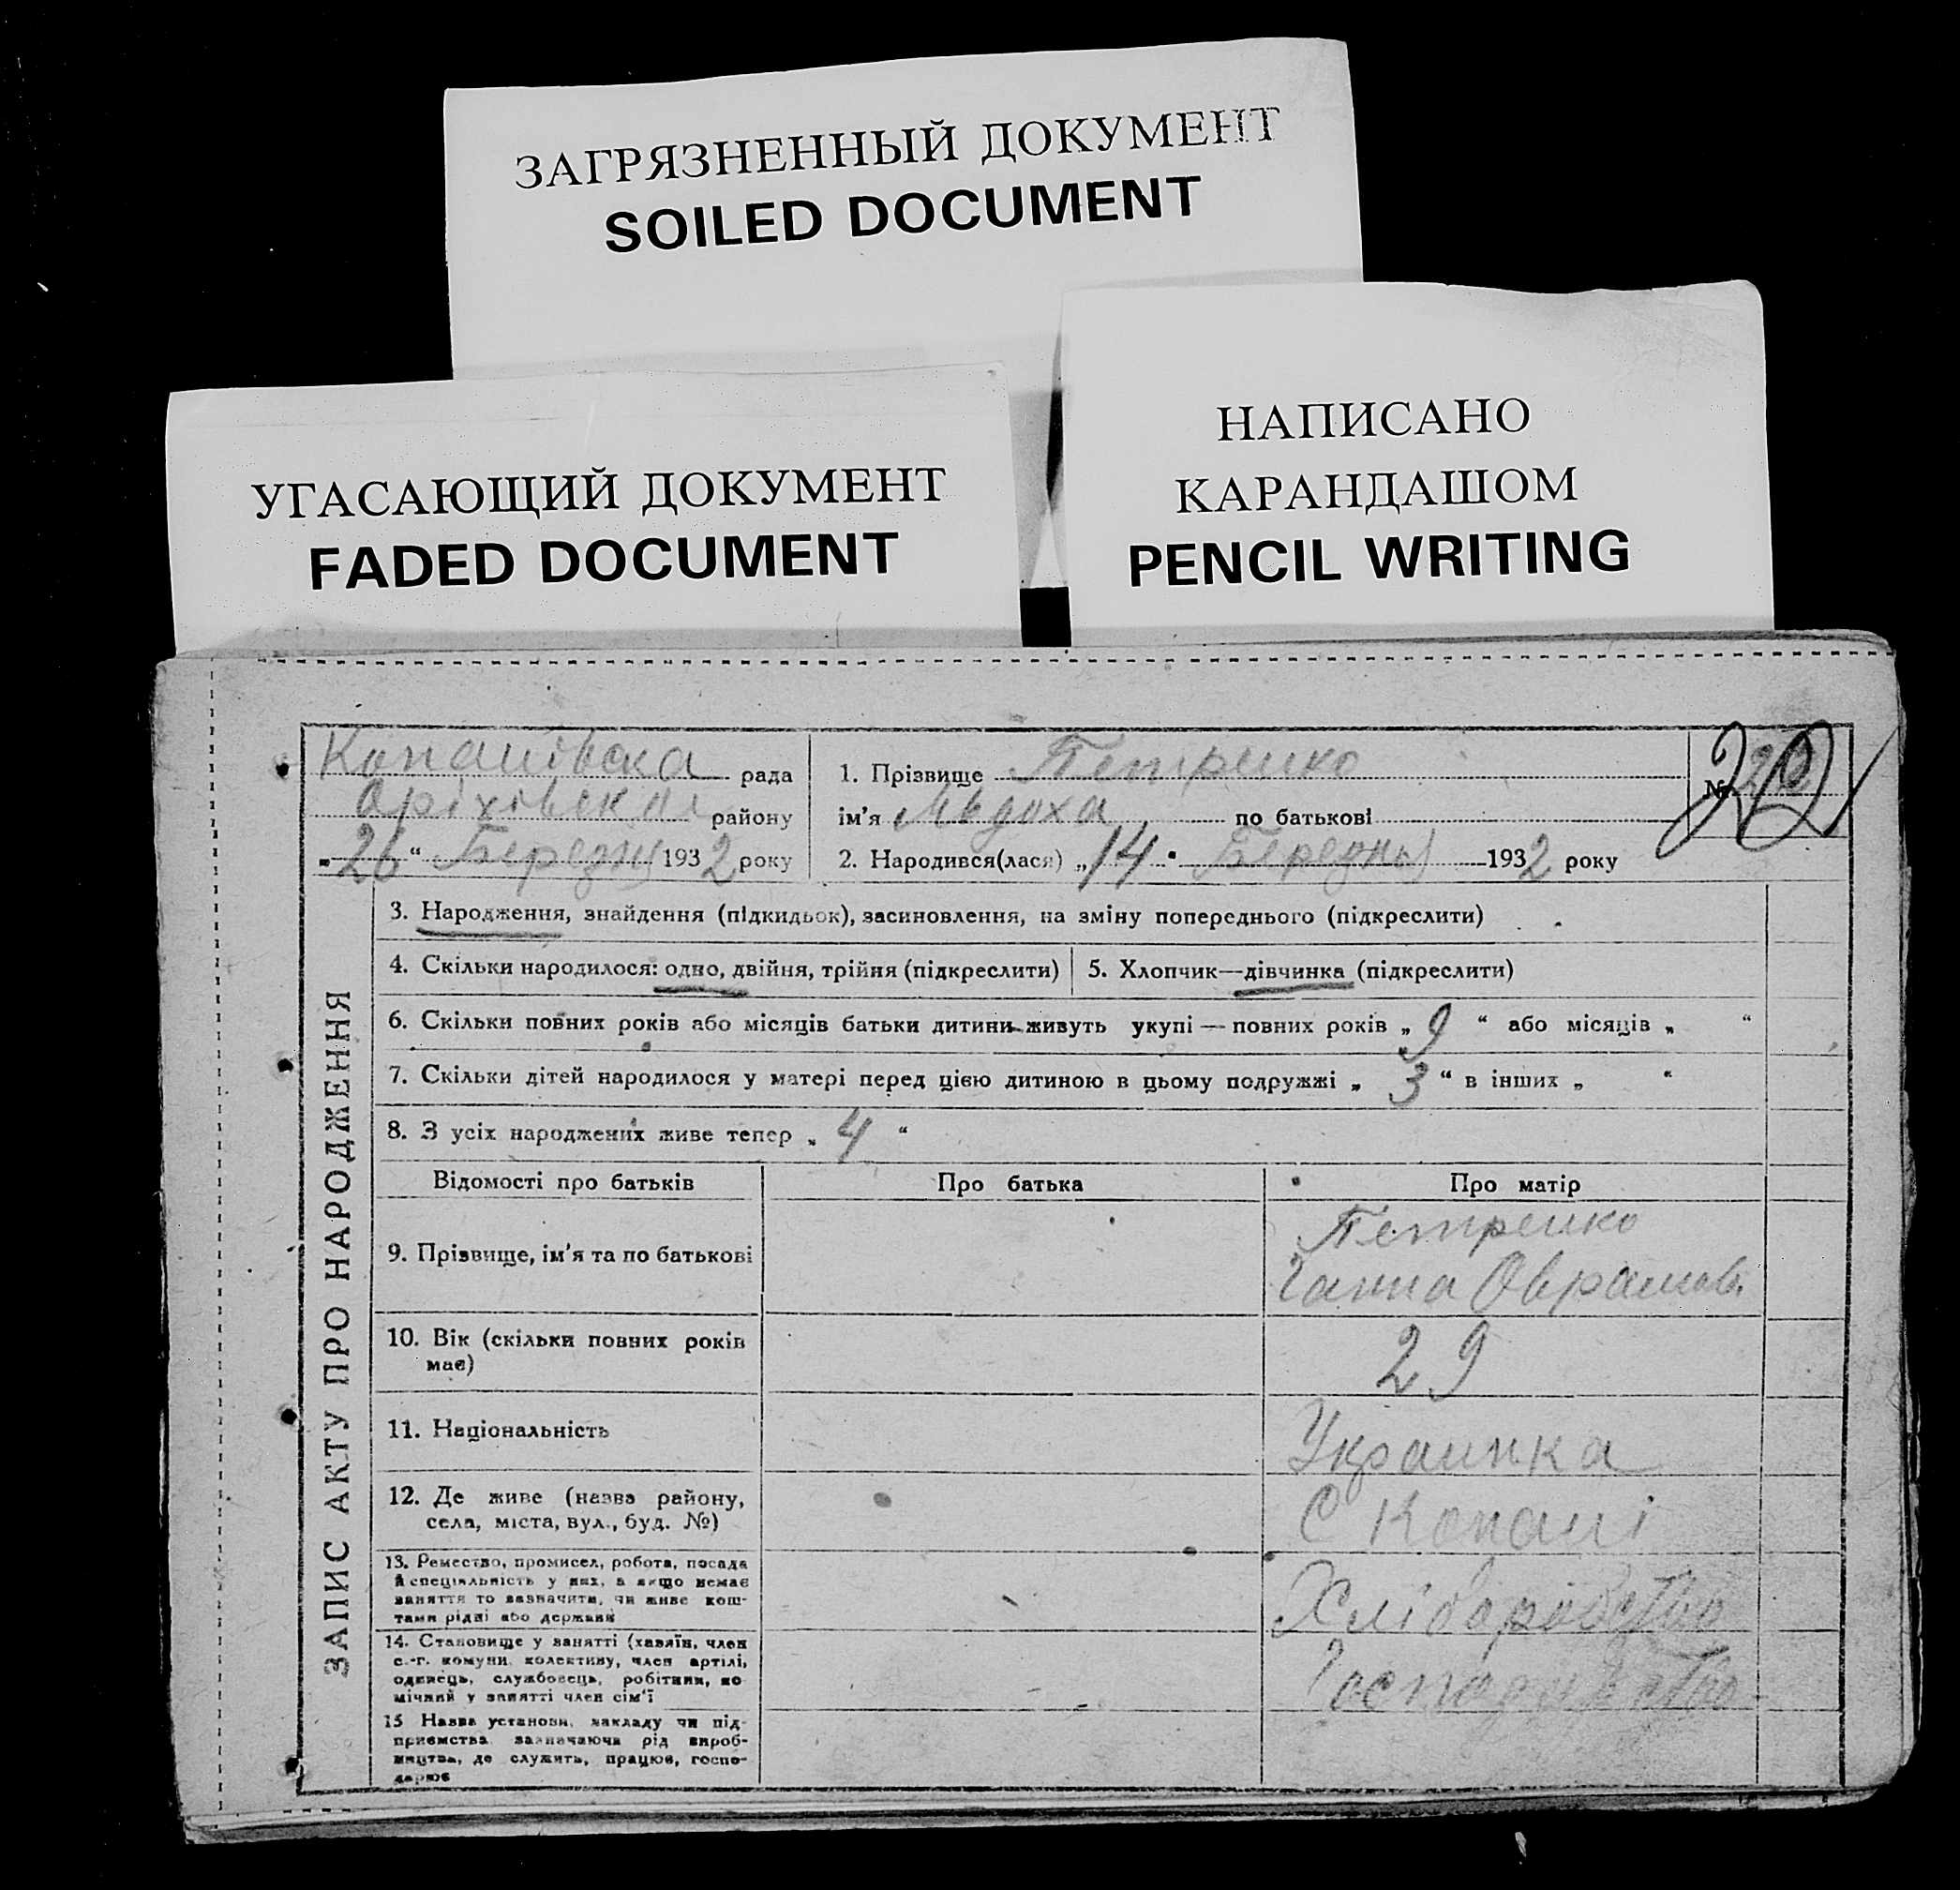 ЗАГРЯЗНЕННЫЙ ДОКУМЕНТ
SOILED DOCUMENT
УГАСАЮЩИЙ ДОКУМЕНТ
FADED DOCUMENT
НАПИСАНО
КАРАНДАШОМ
PENCIL WRITING
Копанівска рада
Оріхівськ району
„26“ Березня 1932 року
1. Прізвище Петренко
ім'я Мвдоха по батькові
2. Народився(лася) „14“ Березня 1932 року
№ 22
ЗАПИС АКТУ ПРО НАРОДЖЕННЯ
3. Народження, знайдення (підкидьок), засиновлення, на зміну попереднього (підкреслити)
4. Скільки народилося: одно, двійня, трійня (підкреслити)
5. Хлопчик—дівчинка (підкреслити)
6. Скільки повних років або місяців батьки дитини живуть укупі — повних років „9“ або місяців „ “
7. Скільки дітей народилося у матері перед цією дитиною в цьому подружжі „3“ в інших „ “
8. З усіх народжених живе тепер „4“
Відомості про батьків Про батька Про матір
9. Прізвище, ім'я та по батькові
Петренко
Ганна Оврамов.
10. Вік (скільки повних років
має)
29
11. Національність
Украинка
12. Де живе (назва району,
села, міста, вул., буд. №)
С Копані
13. Ремество, промисел, робота, посада
й спеціяльність у них, а якщо немає
заняття то зазначити, чи живе кош-
тами рідні або держави
Хліборобство
14. Становище у занятті (хазяїн, член
с.-г. комуни, колективу, член артілі,
одинець, службовець, робітник, по
мічний у занятті член сім'ї
Господарство
15 Назва установи, закладу чи під-
приємства зазначаючи рід вироб-
ництва, де служить, працює, госпо-
дарює